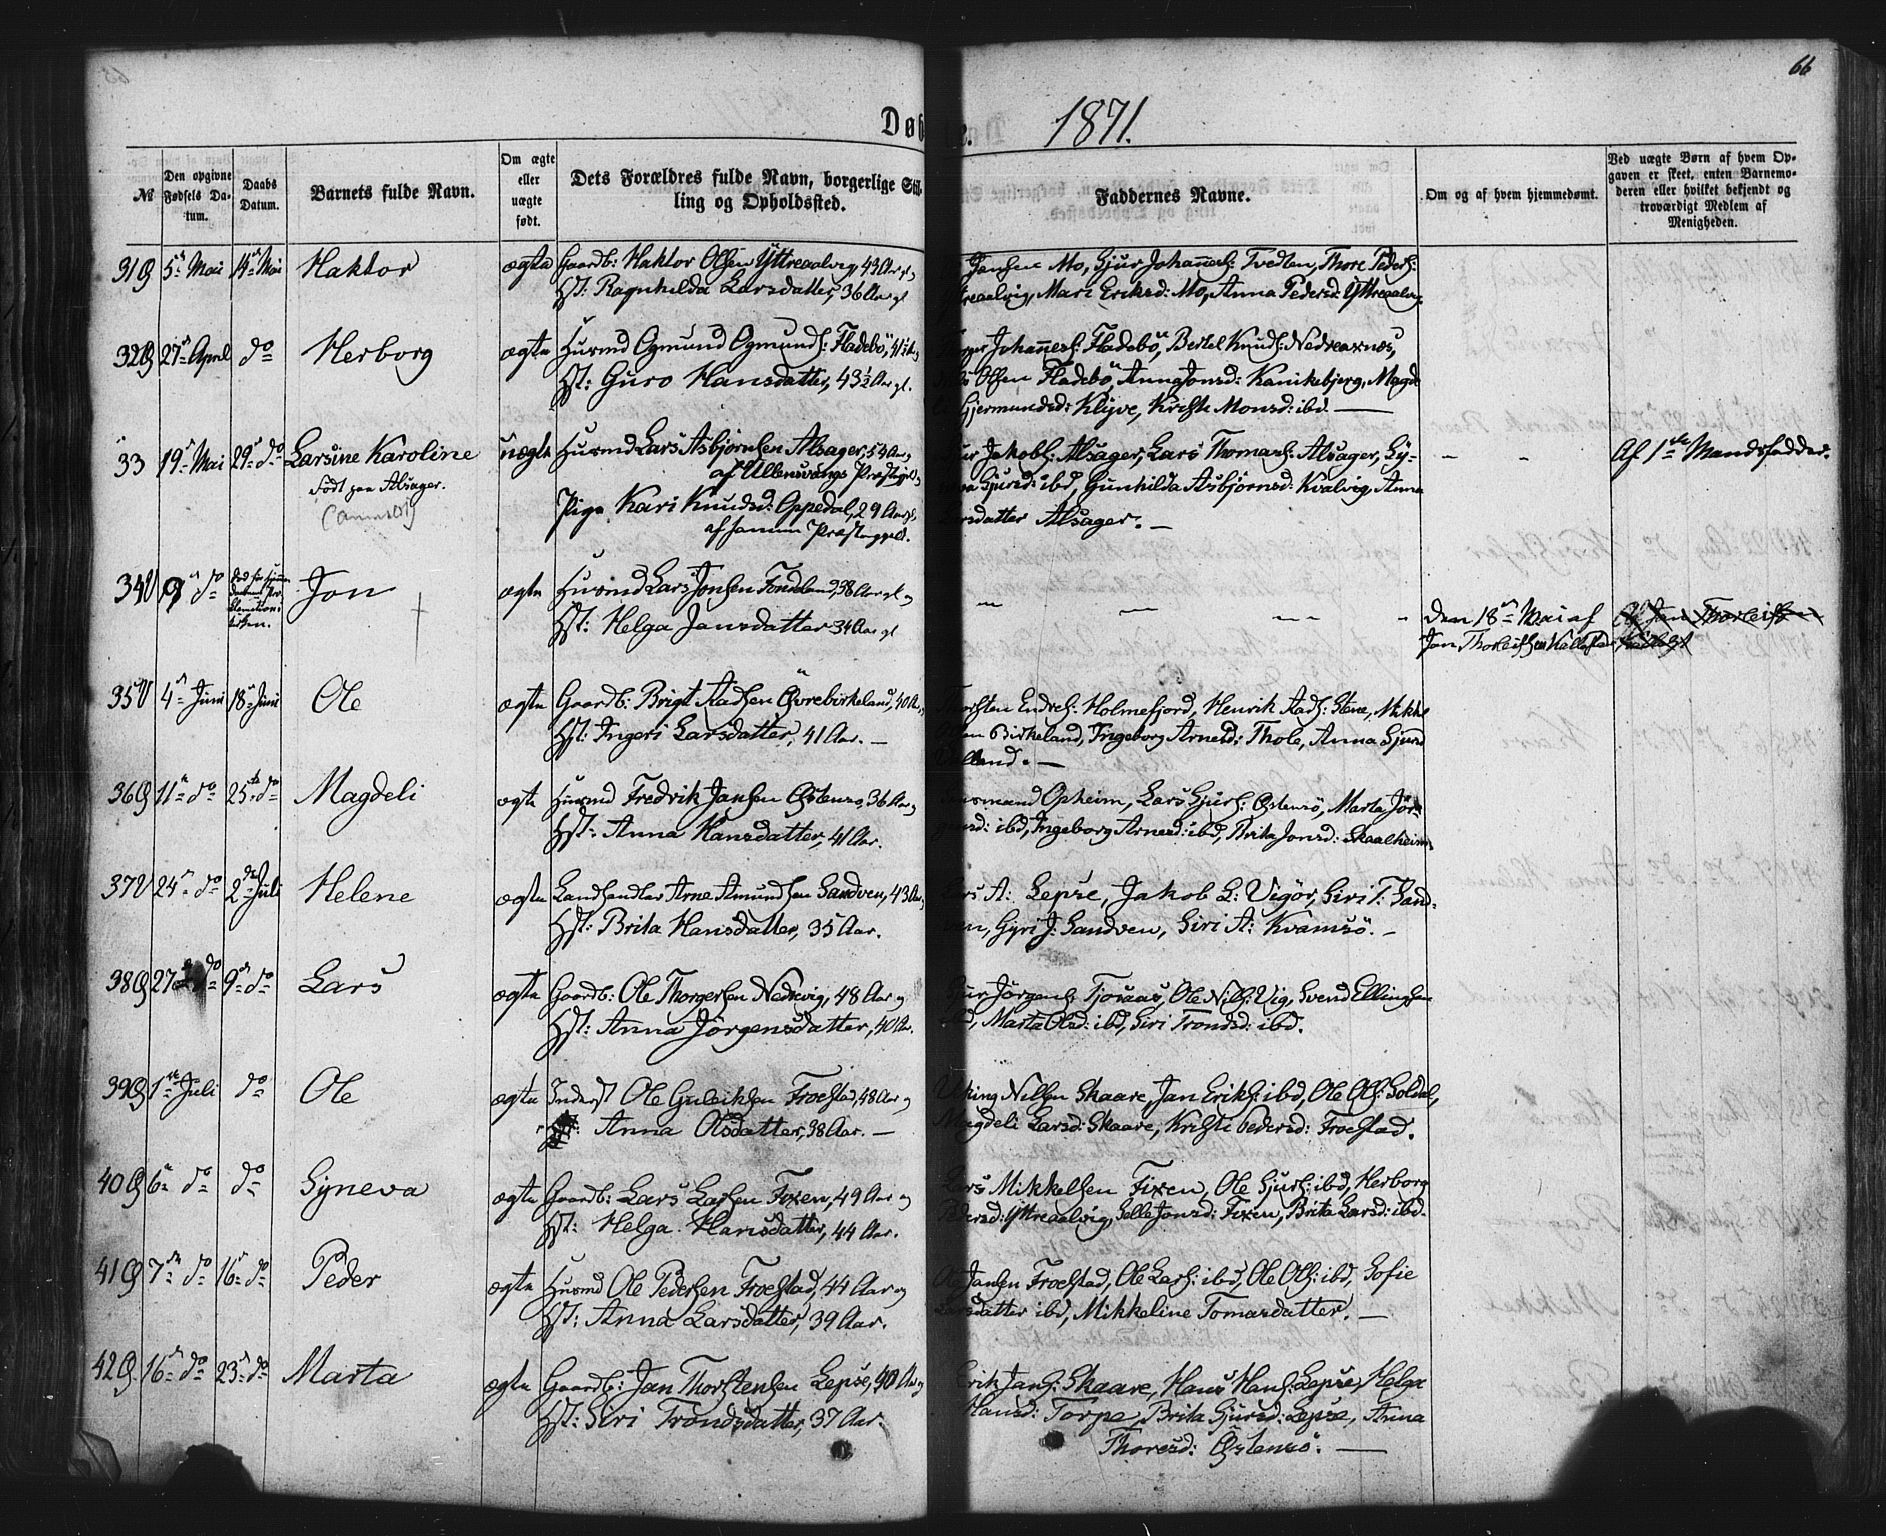 66
Døb
1871.
№
Den opgivne Fødsels Datum.
Daabs Datum.
Barnets fulde Navn.
Om ægte eller uægte født.
Dets Forældres fulde Navn, borgerlige Stilling og Opholdssted.
Faddernes Navne.
Om og af hvem hjemmedømt.
Ved uægte Børn af hvem Opgaven er skeet, enten Barnemoderen eller hvilket bekjendt og troværdigt Medlem af Menigheden.
31 5 Mai 14 Mai Haktor ægte Gaardb: Haktor Olsen Yttreaalvig, 43 Aar gl og
Hst: Ragnhilda Larsdatter, 36 Aar gl
Jansen Mo, Sjur Johanness: Tvedten, Thore Peders:
Mari Eriksd: Mo, Anna Pedersd: Yttreaalvig
32 27 April do Herborg ægte Husmd Ogmund Ogmunds: Fladebö, 41½ Aar
Hst: Guro Hansdatter, 43½ Aar gl.
Johanness: Fladebö, Bertel Knuds: Nedreaxnes,
Olsen Fladebö, Anna Jonsd: Kanikebjerg, Magde
Gjermundsd: Klyve, Kriste Monsd: ibd. —
33 19 Mai 29 do Larsine Karoline uægte Husmd Lars Asbjörnsen Alsager, 54 Aar,
Født paa Alsager.
af Ullensvangs Præstegjeld,
Pige Kari Knudsd: Oppedal, 29 Aar gl,
af samme Præstegjeld.
Jakobs: Alsager, Lars Thomass: Alsager, Sy-
Sjursd: ibd, Gunhilda Asbjörnsd: Kvalvig, Anna
Larsdatter Alsager. —
Af 1ste Mandsfadder.
34 9 do Jon ægte Husmd Lars Jonsen Fondeland, 38 Aar gl og
Hst: Helga Jansdatter 34 Aar gl
Den 18 Mai af
Jon Thorleifsen
Af Jan Thorleifsen
35 4 Juni 18 Juni Ole ægte Gaardb: Brigt Aadsen Øvrebirkeland, 40 Aar,
Hst: Ingeri Larsdatter, 41 Aar. —
Torsten Endres: Holmefjord, Henrik Aads: Stene, Mikkel
Birkeland, Ingeborg Arnesd: Thole, Anna Sjursd
36 11 do 25 do Magdeli ægte Husmd Fredrik Jansen Østensö, 36 Aar og
Hst: Anna Hansdatter, 41 Aar.
Opheim, Lars Sjurs: Østensö, Marta Jör-
gensd: ibd, Ingeborg Arnesd: ibd, Brita Jonsd: Skaalheim
37 24 do 2 Juli Helene ægte Landhandler Arne Amundsen Sandven, 43 Aar,
Hst: Brita Hansdatter, 35 Aar.
Lars A: Lepse, Jakob L: Vigör, Siri T: Sand-
ven, Gyri J: Sandven, Siri A: Kvamsö. —
38 27 do 9 do Lars ægte Gaardb: Ole Thorgersen Nedrevig, 48 Aar og
Hst: Anna Jörgensdatter, 40 Aar.
Sjur Jörgens: Tjosaas, Ole Nils: Vig, Svend Ellingsen
ibd, Marta Olsd: ibd, Siri Trondsd: ibd.
39 1 Juli do Ole ægte Inderst Ole Guleiksen Froestad, 48 Aar og
Anna Olsdatter, 38 Aar. —
Viking Nilsen Skaare, Jan Eriks: ibd, Ole Ols: Soldal,
Magdeli Larsd: Skaare, Kriste Pedersd: Froestad.
40 6 do do Syneva ægte Gaardb: Lars Larsen Fixen, 49 Aar og
Hst: Helga Hansdatter, 44 Aar.
Lars Mikkelsen Fixen, Ole Sjurs: ibd, Herborg
Pedersd: Yttreaalvig, Selle Jonsd: Fixen, Brita Larsd: ibd.
41 7 do 16 do Peder ægte Husmd Ole Pedersen Froestad, 44 Aar og
Hst: Anna Larsdatter, 39 Aar.
Jansen Froestad, Ole Lars: ibd, Ole Ols: ibd, Sofie
Larsdatter ibd, Mikkeline Tomasdatter. —
42 16 do 23 do Marta ægte Gaardb: Jan Thorstensen Lepse, 40 Aar og
Hst: Siri Trondsdatter, 37 Aar.
Erik Jans: Skaare, Hans Hans: Lepse, Helga
Hansd: Torpe, Brita Sjursd: Lepse, Anna
Thoresd: Østensö. —